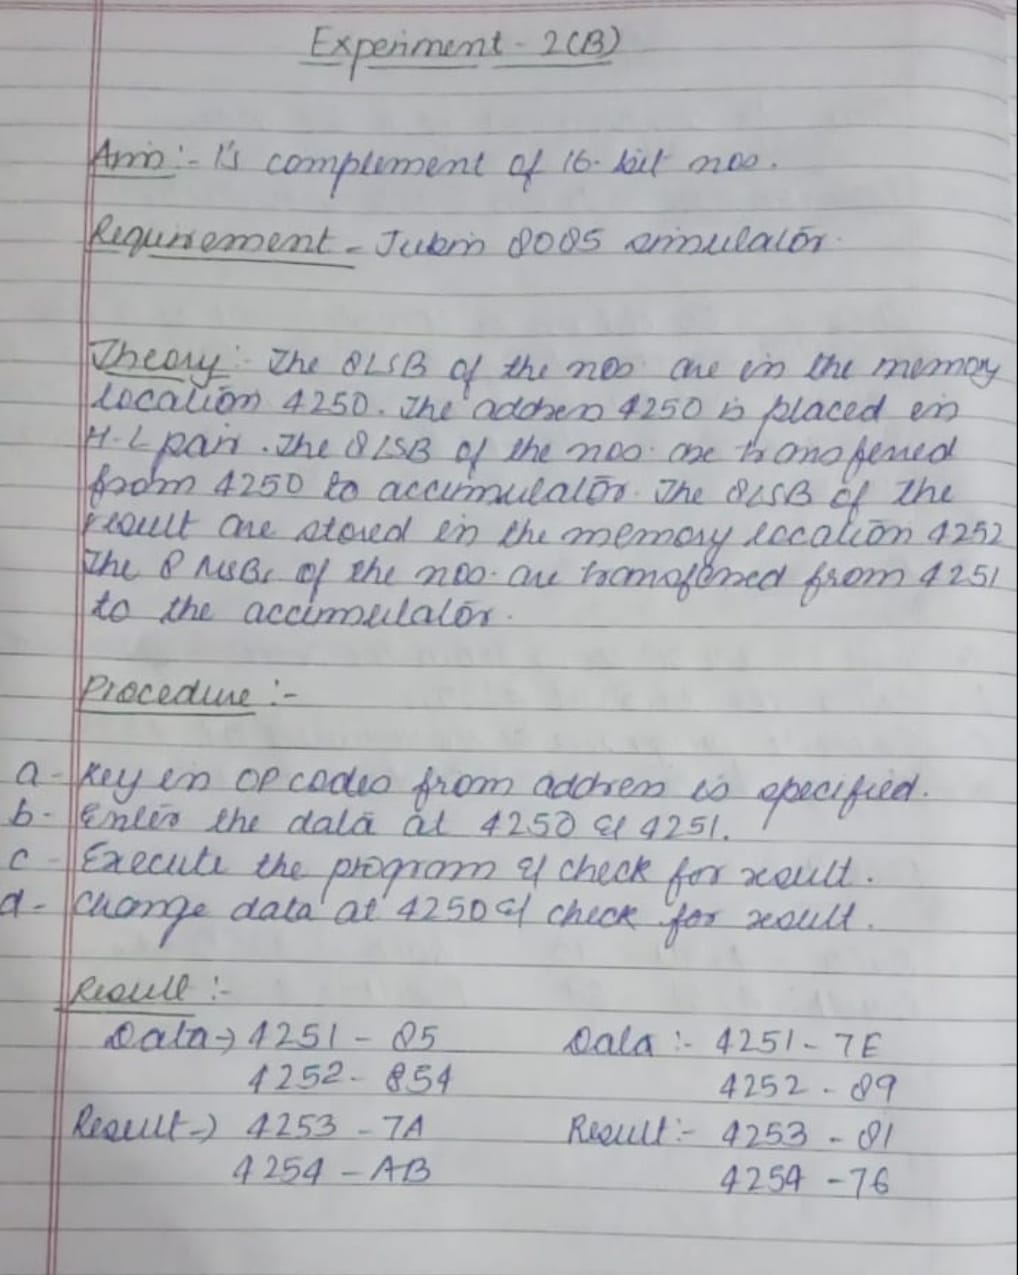 Experiment - 2(B)
Aim :- 1's complement of 16-bit nos.
Requirement - Jubin 8085 simulator.
Theory :- The 8LSB of the nos are in the memory
location 4250. The address 4250 is placed in
H-L pair. The 8LSB of the nos. are transferred
from 4250 to accumulator. The 8LSB of the
result are stored in the memory location 4252
The 8 MSBs of the nos. are transferred from 4251
to the accumulator.
Procedure :-
a - Key in OP codes from address is specified.
b - Enter the data at 4250 & 4251.
c - Execute the program & check for result.
d - Change data at 4250 & check for result.
Result :-
Data → 4251 - 85 Data :- 4251 - 7E
4252 - 854 4252 - 89
Result → 4253 - 7A Result :- 4253 - 81
4254 - AB 4254 - 76